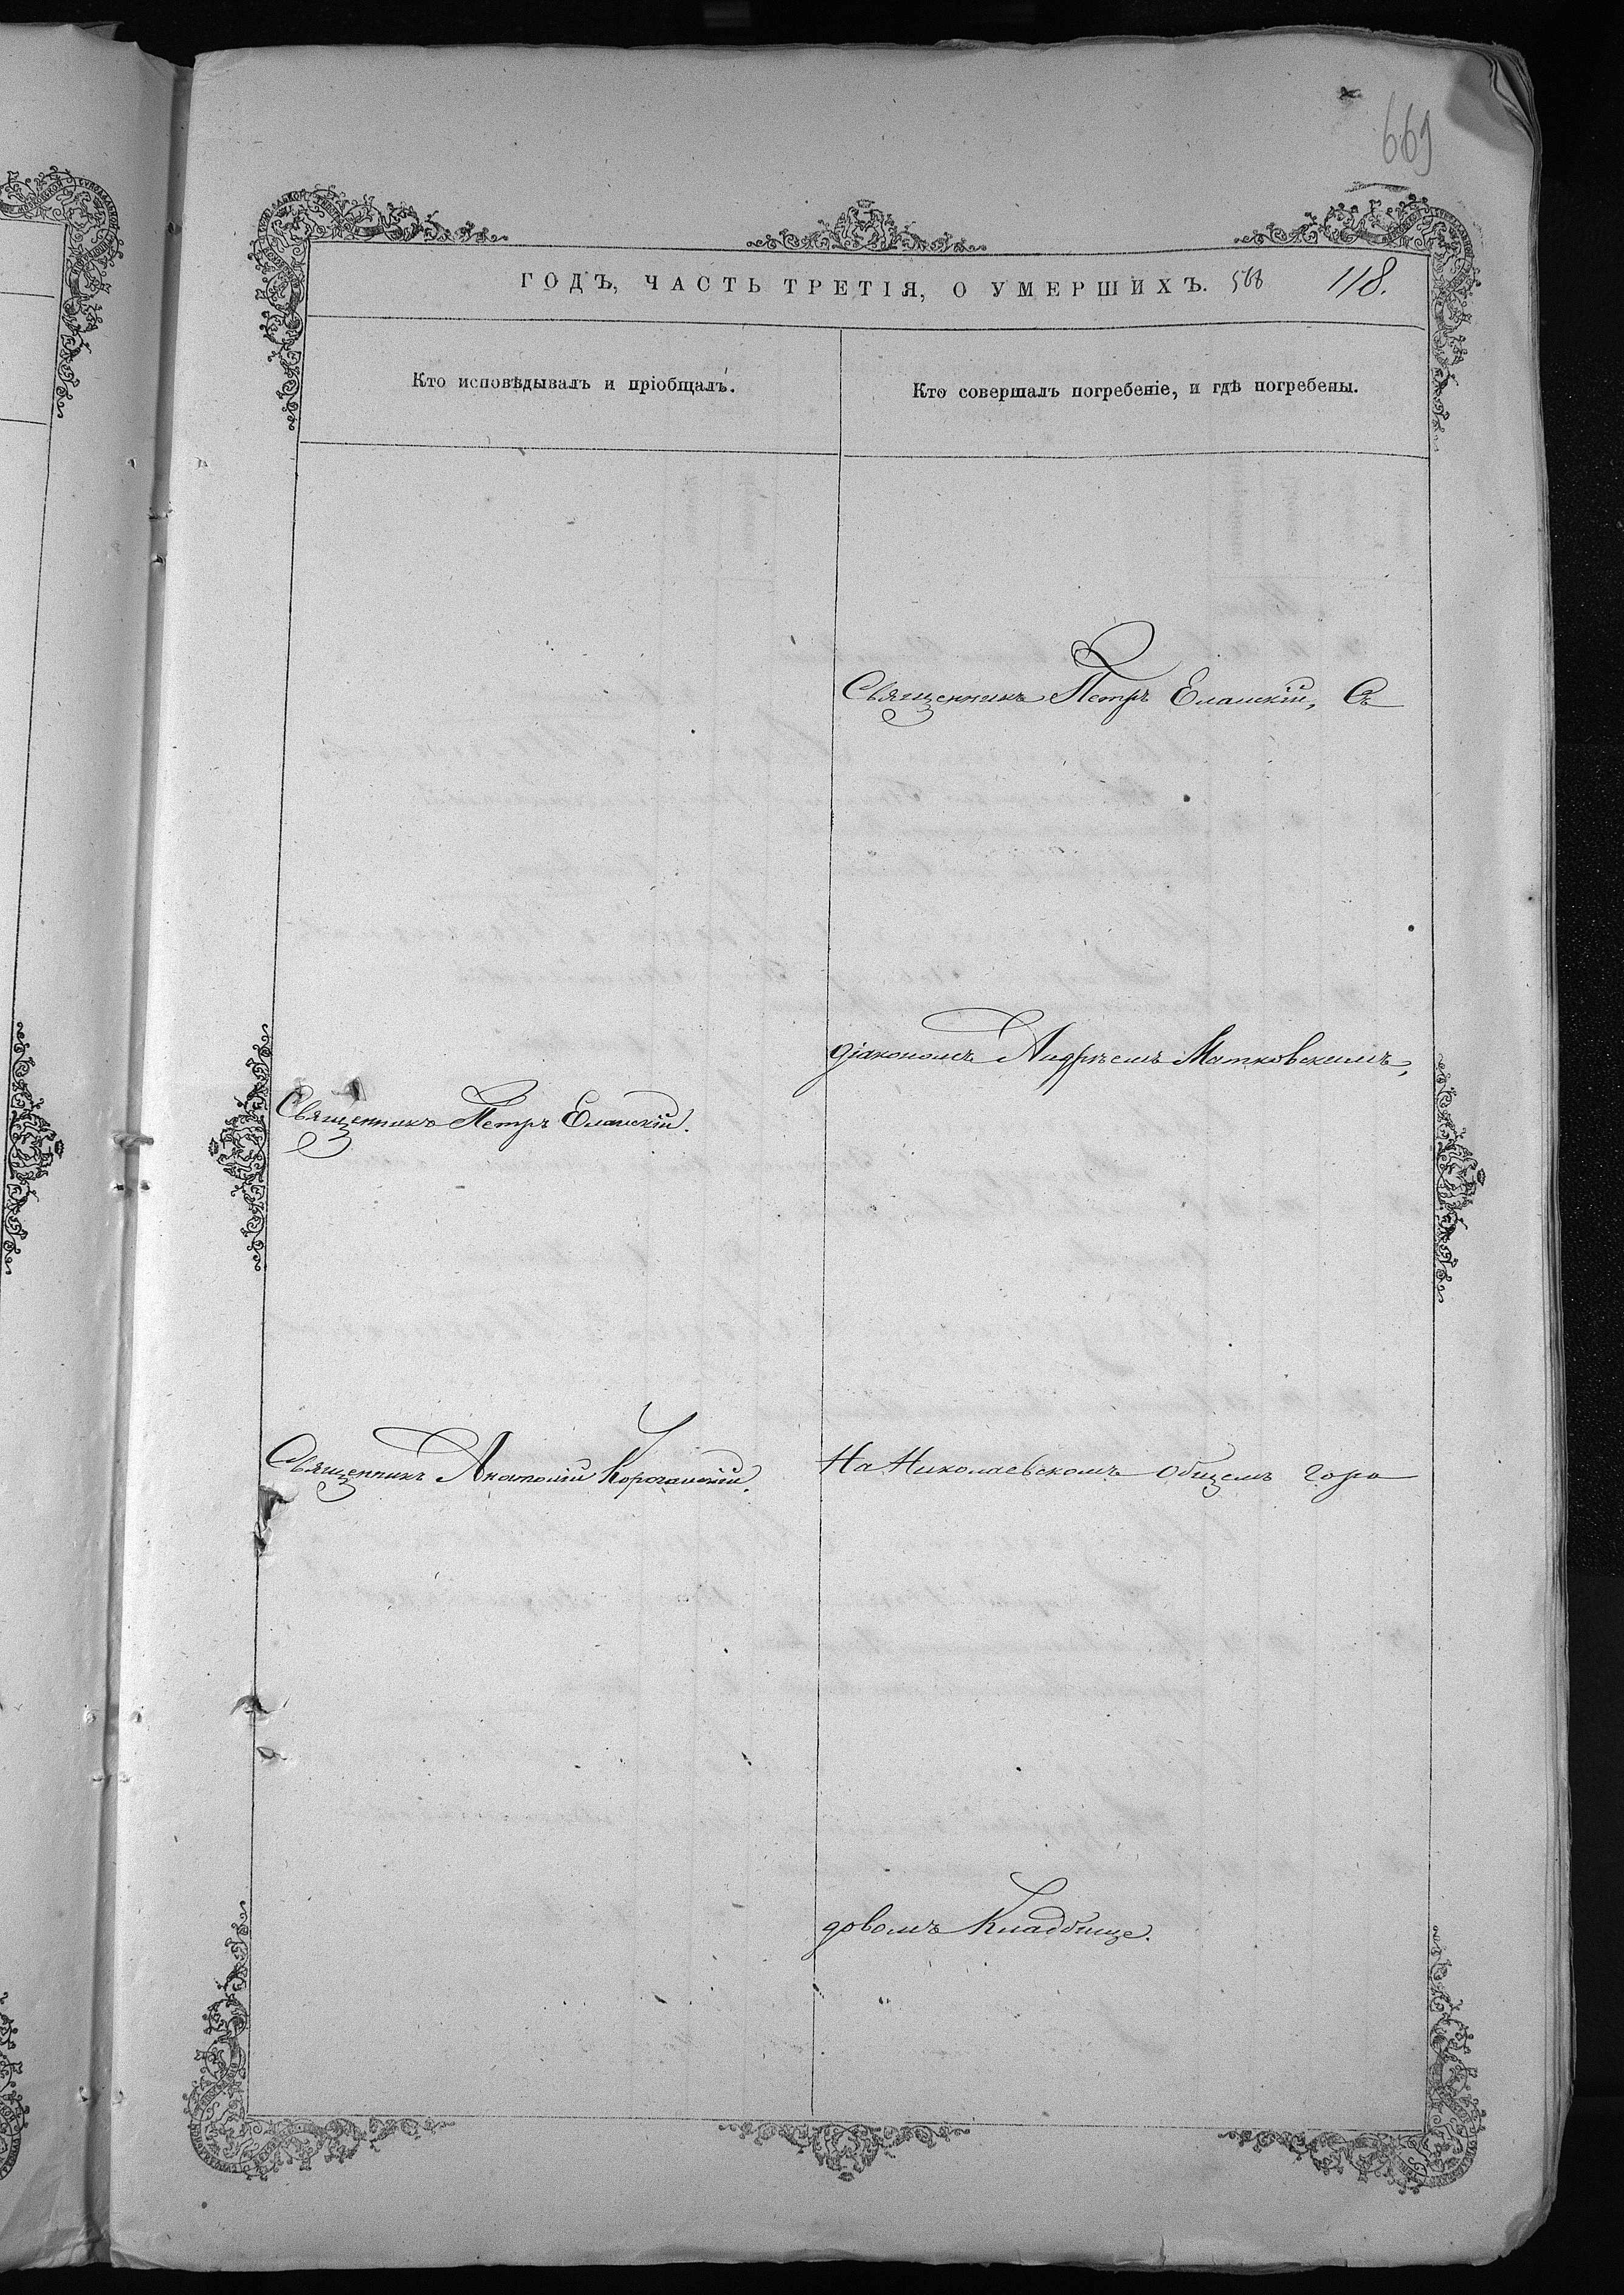 669
ГОДЪ, ЧАСТЬ ТРЕТІЯ, О УМЕРШИХЪ. 568 118.
Кто исповѣдывалъ и пріобщалъ.
Кто совершалъ погребеніе, и гдѣ погребены.
Священникъ Петръ Еланскій, Съ
діакономъ Андреемъ Матковскимъ,
Священникъ Петръ Еланскій.
Священникъ Анатолій Корчанскій.
На Николаевскомъ общемъ горо
довомъ Кладбище.